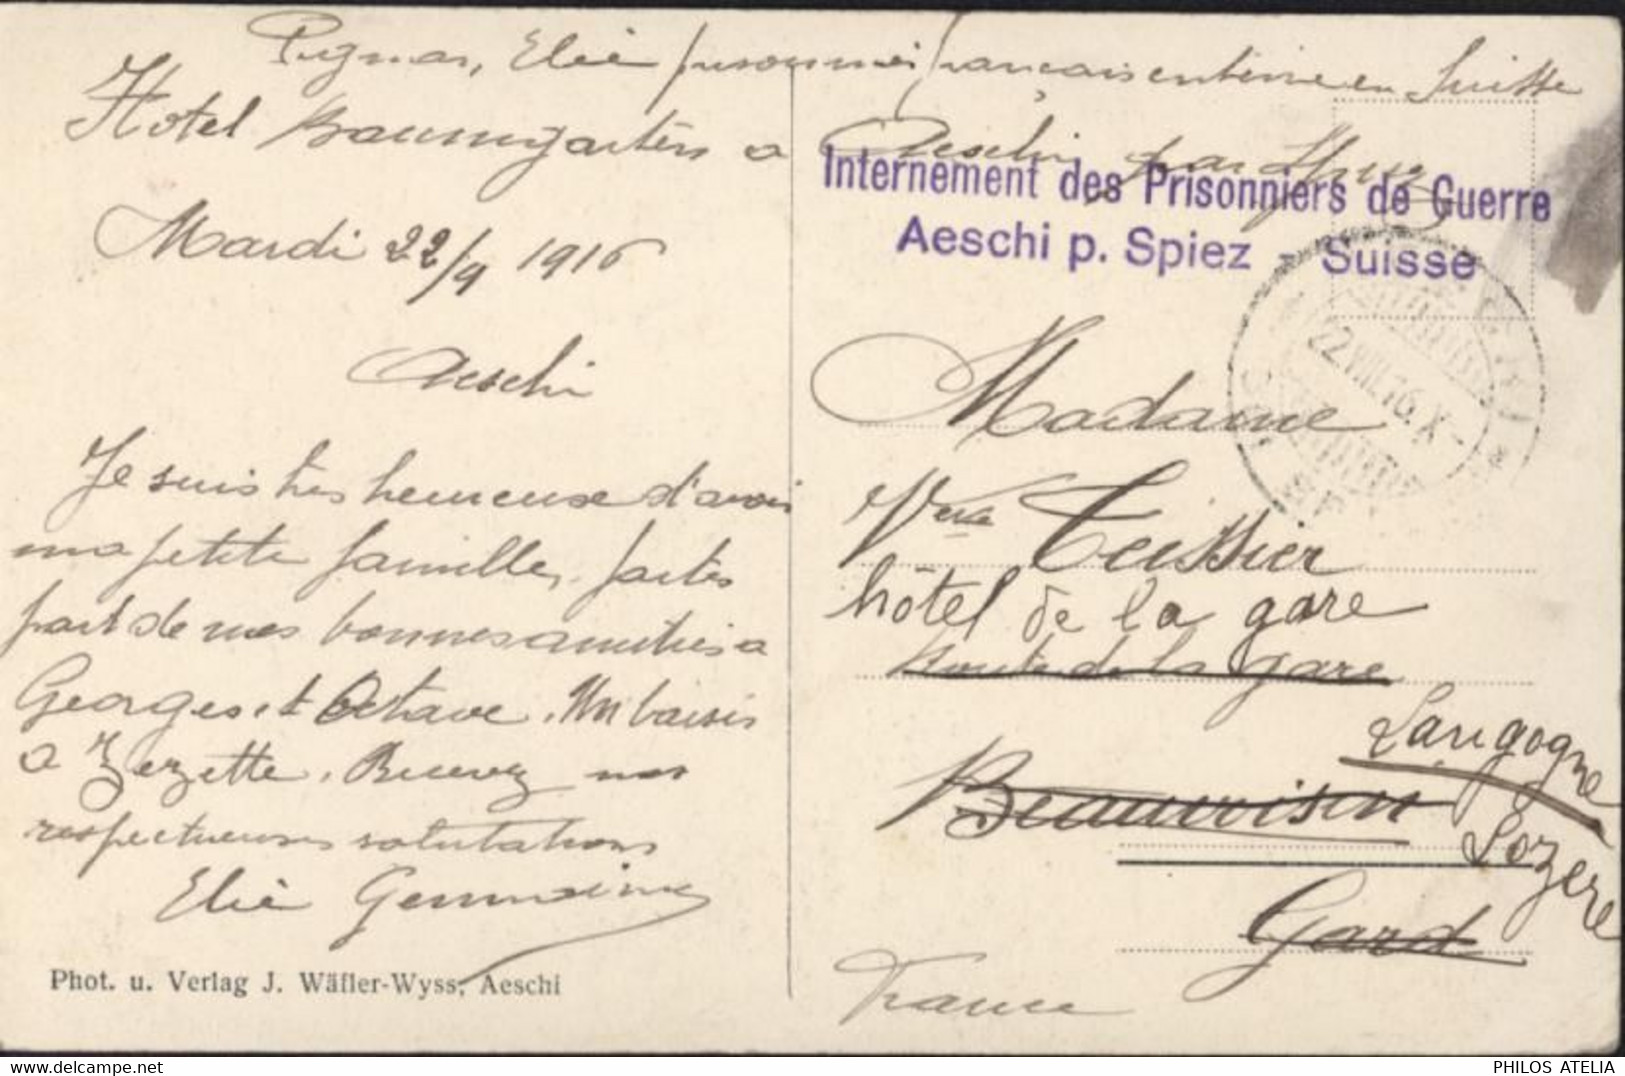 Pignar, Elie prisonnier français interné en Suisse
Hotel Baumgarten a Aeschi par Spiez
Internement des Prisonniers de Guerre
Aeschi p. Spiez - Suisse
22.VIII.16.X-
Mardi 22/9 1916
Aeschi
Je suis très heureuse d'avoir
ma petite famille, faites
part de mes bonnes amitiés a
Georges et Octave. Un baisis
a Zezette. Recevez nos
respectueuses salutations
Elie Germaine
Phot. u. Verlag J. Wäfler-Wyss, Aeschi
Madame
Vve Teissier
hôtel de la gare
Route de la gare
Langogne
Beauvoisin
Lozère
Gard
France
PHILOS ATELIA